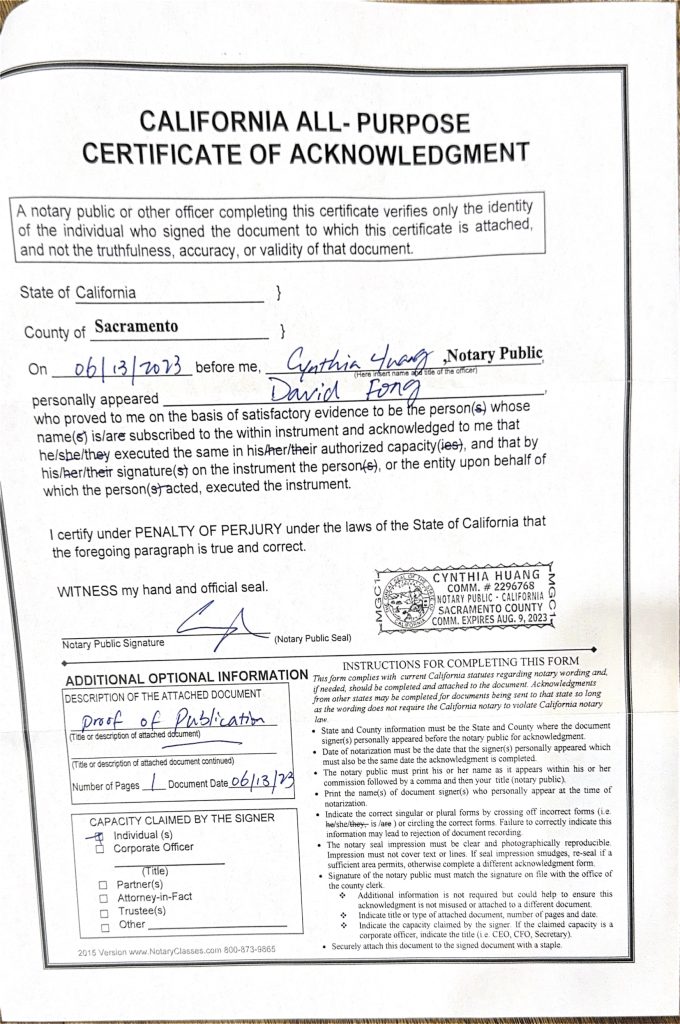 CALIFORNIA ALL- PURPOSE
CERTIFICATE OF ACKNOWLEDGMENT
A notary public or other officer completing this certificate verifies only the identity
of the individual who signed the document to which this certificate is attached,
and not the truthfulness, accuracy, or validity of that document.
State of California }
County of Sacramento }
On 06/13/2023 before me, Cynthia Huang ,Notary Public,
(Here insert name and title of the officer)
personally appeared David Fong,
who proved to me on the basis of satisfactory evidence to be the person(s) whose
name(s) is/are subscribed to the within instrument and acknowledged to me that
he/she/they executed the same in his/her/their authorized capacity(ies), and that by
his/her/their signature(s) on the instrument the person(s), or the entity upon behalf of
which the person(s) acted, executed the instrument.
I certify under PENALTY OF PERJURY under the laws of the State of California that
the foregoing paragraph is true and correct.
WITNESS my hand and official seal.
CYNTHIA HUANG
COMM. # 2296768
NOTARY PUBLIC - CALIFORNIA
SACRAMENTO COUNTY
COMM. EXPIRES AUG. 9, 2023
MGC1
MGC1
Notary Public Signature (Notary Public Seal)
ADDITIONAL OPTIONAL INFORMATION
DESCRIPTION OF THE ATTACHED DOCUMENT
Proof of Publication
(Title or description of attached document)
(Title or description of attached document continued)
Number of Pages 1 Document Date 06/13/23
CAPACITY CLAIMED BY THE SIGNER
Individual (s)
Corporate Officer
(Title)
Partner(s)
Attorney-in-Fact
Trustee(s)
Other
2015 Version www.NotaryClasses.com 800-873-9865
INSTRUCTIONS FOR COMPLETING THIS FORM
This form complies with current California statutes regarding notary wording and,
if needed, should be completed and attached to the document. Acknowledgments
from other states may be completed for documents being sent to that state so long
as the wording does not require the California notary to violate California notary
law.
• State and County information must be the State and County where the document
signer(s) personally appeared before the notary public for acknowledgment.
• Date of notarization must be the date that the signer(s) personally appeared which
must also be the same date the acknowledgment is completed.
• The notary public must print his or her name as it appears within his or her
commission followed by a comma and then your title (notary public).
• Print the name(s) of document signer(s) who personally appear at the time of
notarization.
• Indicate the correct singular or plural forms by crossing off incorrect forms (i.e.
he/she/they, is /are ) or circling the correct forms. Failure to correctly indicate this
information may lead to rejection of document recording.
• The notary seal impression must be clear and photographically reproducible.
Impression must not cover text or lines. If seal impression smudges, re-seal if a
sufficient area permits, otherwise complete a different acknowledgment form.
• Signature of the notary public must match the signature on file with the office of
the county clerk.
❖ Additional information is not required but could help to ensure this
acknowledgment is not misused or attached to a different document.
❖ Indicate title or type of attached document, number of pages and date.
❖ Indicate the capacity claimed by the signer. If the claimed capacity is a
corporate officer, indicate the title (i.e. CEO, CFO, Secretary).
• Securely attach this document to the signed document with a staple.